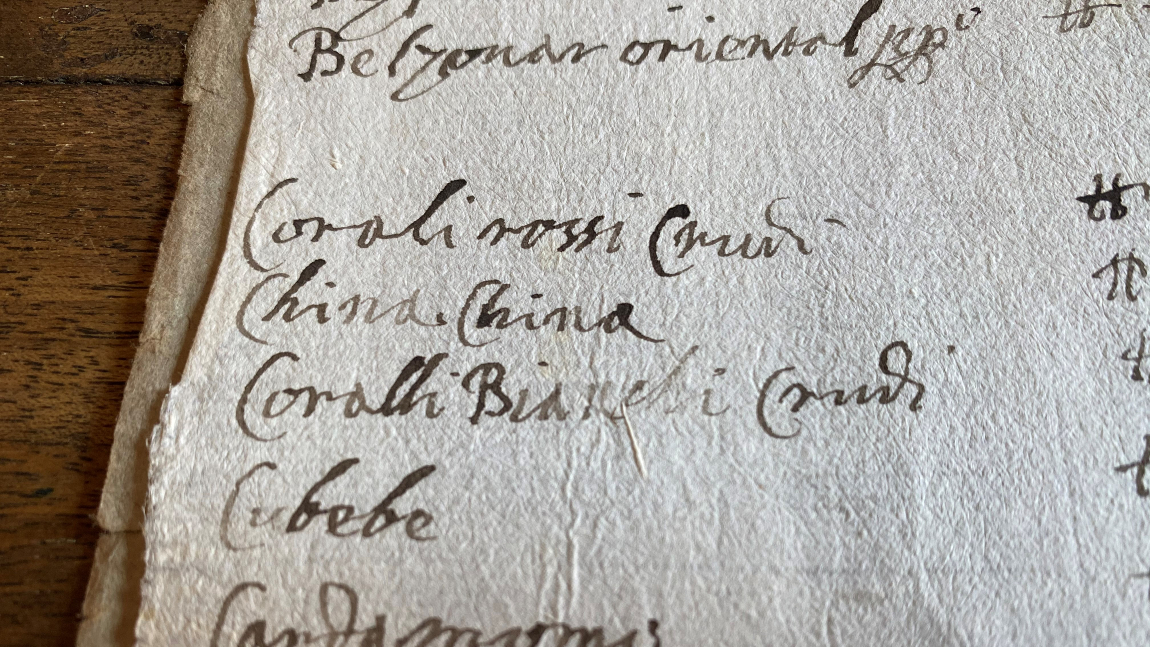 Belzouar oriental ppº
Corali rossi Crudi
China China
Coralli Bianchi Crudi
Cubebe
Cardamomi